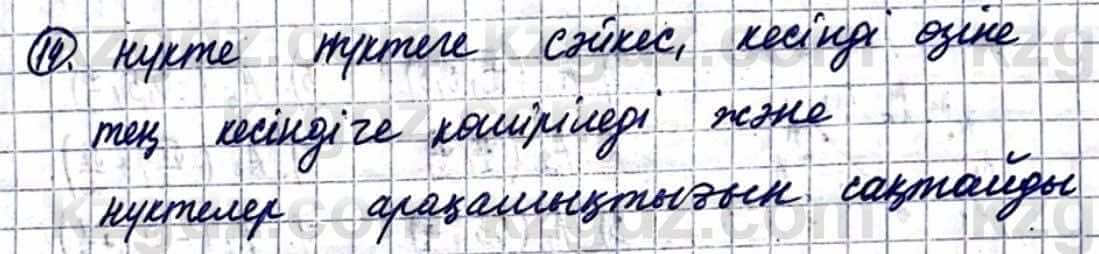 14. нүкте нүктеге сәйкес, кесінді өзіне
тең кесіндіге көшіріледі және
нүктелер арақашықтығын сақтайды